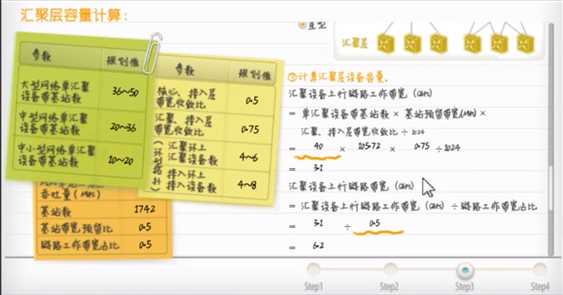 汇聚层容量计算：
参数 规划值
大型网络单汇聚设备带基站数 36~50
中型网络单汇聚设备带基站数 20~36
中小型网络单汇聚设备带基站数 10~20
参数 规划值
核心、接入层带宽收敛比 0.5
汇聚、接入层带宽收敛比 0.75
汇聚环上汇聚设备数 4~6
接入环上接入设备数 4~8
吞吐量（Mbps）
基站数 1742
基站带宽预留比 0.5
链路工作带宽占比 0.5
汇聚层
②计算汇聚层设备容量。
汇聚设备上行链路工作带宽（Gbps）
= 单汇聚设备带基站数 × 基站预留带宽(Mbps) ×
汇聚、接入层带宽收敛比 ÷ 1024
= 40 × 105.72 × 0.75 ÷ 1024
= 3.1
汇聚设备上行链路带宽（Gbps）
= 汇聚设备上行链路工作带宽（Gbps）÷ 链路工作带宽占比
= 3.1 ÷ 0.5
= 6.2
Step1 Step2 Step3 Step4